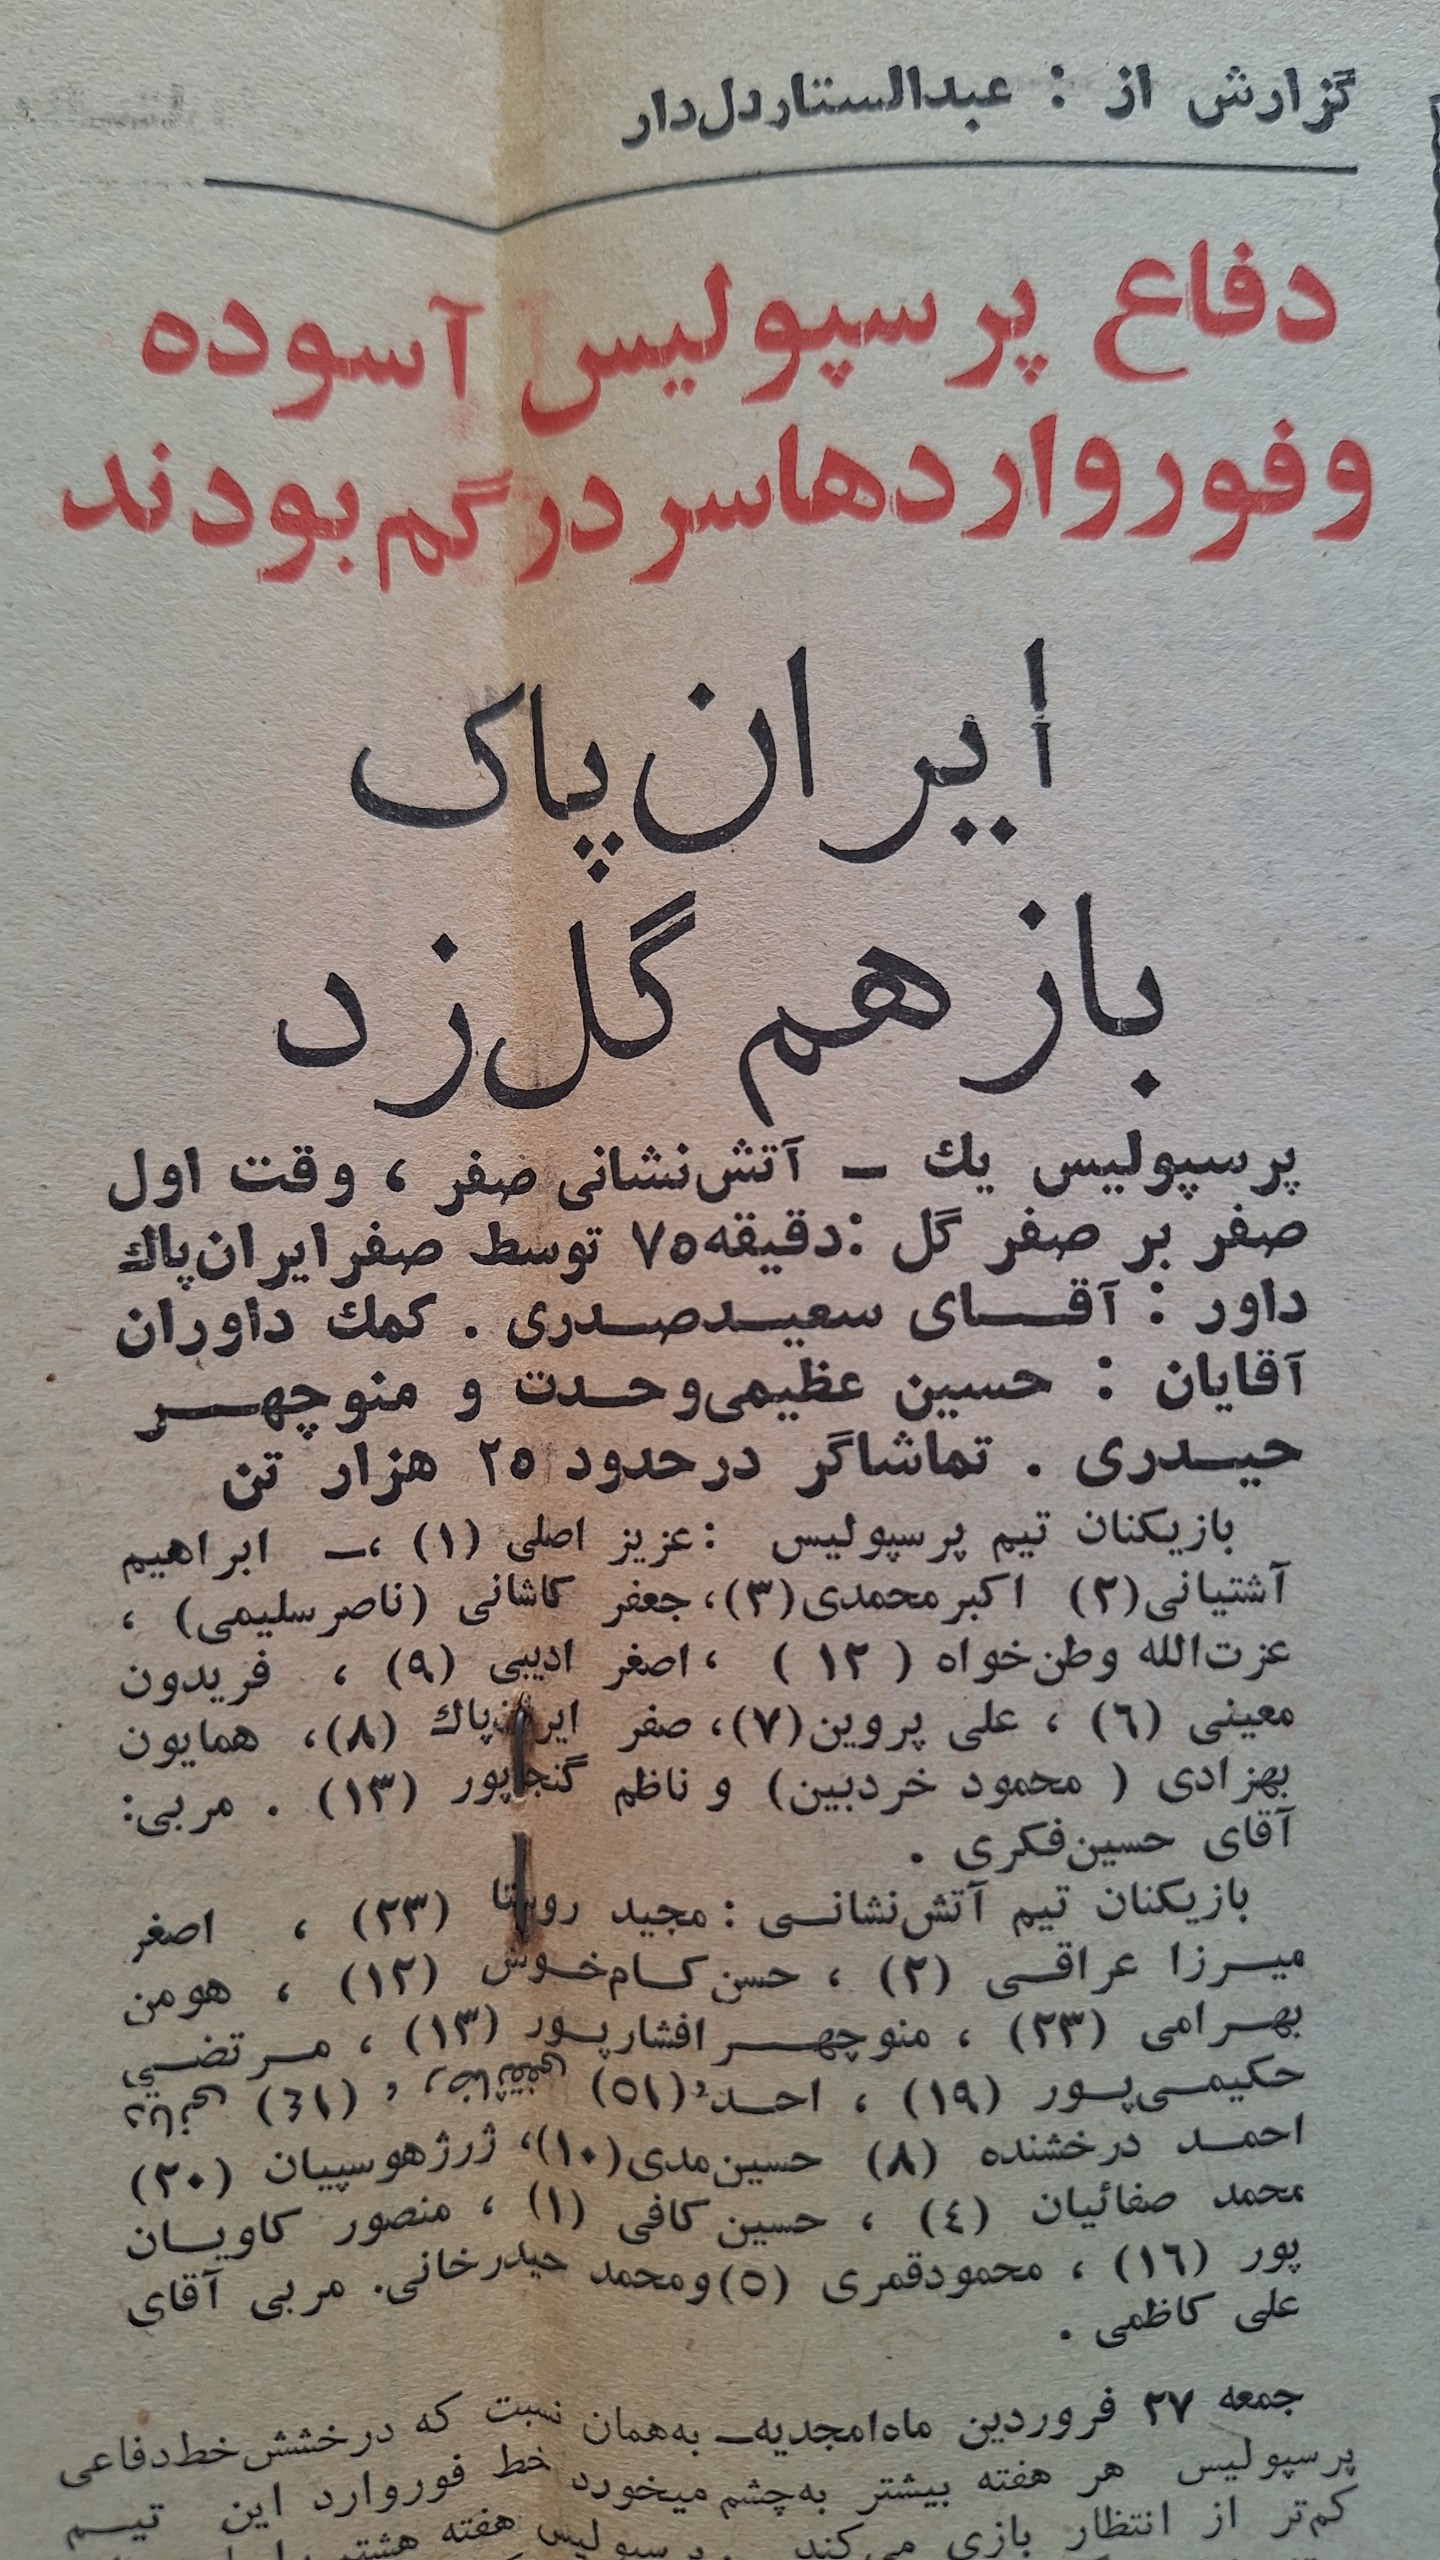 گزارش از : عبدالستار دل‌دار
دفاع پرسپولیس آسوده
و فورواردها سردرگم بودند
ایران پاک
باز هم گل زد
پرسپولیس یك – آتش‌نشانی صفر ، وقت اول
صفر بر صفر گل : دقیقه ۷۵ توسط صفر ایران‌پاك
داور : آقای سعید صدری . کمك داوران
آقایان : حسین عظیمی وحدت و منوچهر
حیدری . تماشاگر در حدود ۲۵ هزار تن
بازیکنان تیم پرسپولیس : عزیز اصلی (۱) ،– ابراهیم
آشتیانی (۲) اکبر محمدی (۳) ، جعفر کاشانی (ناصر سلیمی) ،
عزت‌الله وطن‌خواه ( ۱۲ ) ، اصغر ادیبی (۹) ، فریدون
معینی (۶) ، علی پروین (۷) ، صفر ایران‌پاك (۸) ، همایون
بهزادی ( محمود خردبین) و ناظم گنجاپور (۱۳) . مربی:
آقای حسین فکری .
بازیکنان تیم آتش‌نشانی : مجید روستا (۲۳) ، اصغر
میرزا عراقی (۲) ، حسن کام‌خوش (۱۲) ، هومن
بهرامی (۲۳) ، منوچهر افشارپور (۱۳) ، مرتضی
حکیمی‌پور (۱۹) ، احد
احمد درخشنده (۸) حسین مدی (۱۰) ، ژرژ هوسپیان (۲۰)
محمد صفائیان (٤) ، حسین کافی (۱) ، منصور کاویان
پور (۱۶) ، محمود قمری (۵) و محمد حیدرخانی. مربی آقای
علی کاظمی .
جمعه ۲۷ فروردین ماه امجدیه– به‌همان نسبت که درخشش خط دفاعی
پرسپولیس هر هفته بیشتر به‌چشم میخورد خط فوروارد این تیم
کم‌تر از انتظار بازی می‌کند . پرسپولیس هفته هشتم